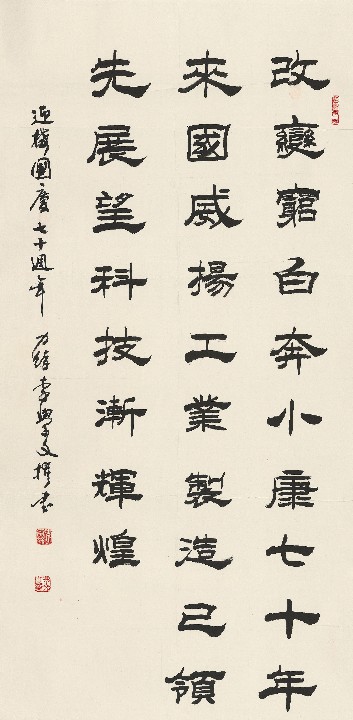 改變窮白奔小康七十年
來國威揚工業製造已領
先展望科技漸輝煌
迎接國慶七十週年